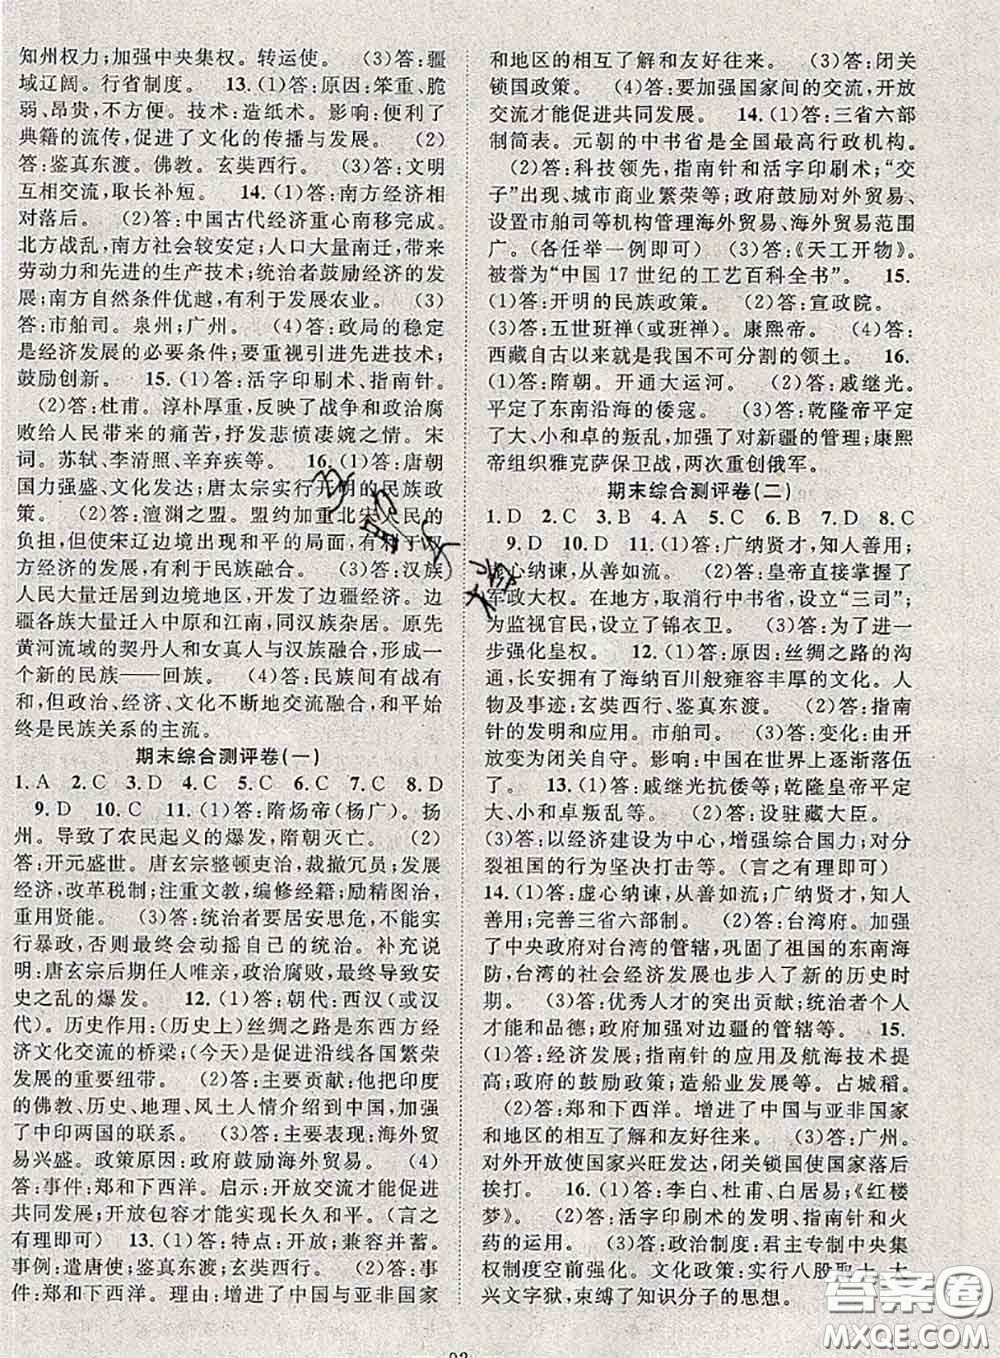 知州权力;加强中央集权。转运使。　(3)答:疆
域辽阔。行省制度。　13.(1)答:原因:笨重、脆
弱、昂贵,不方便。技术:造纸术。影响:便利了
典籍的流传,促进了文化的传播与发展。　(2)
答:鉴真东渡。佛教。玄奘西行。　(3)答:文明
互相交流,取长补短。　14.(1)答:南方经济相
对落后。　(2)答:中国古代经济重心南移完成。
北方战乱,南方社会较安定;人口大量南迁,带来
劳动力和先进的生产技术;统治者鼓励经济的发
展;南方自然条件优越,有利于发展农业。　(3)
答:市舶司。泉州;广州。　(4)答:政局的稳定
是经济发展的必要条件;要重视引进先进技术;
鼓励创新。　15.(1)答:活字印刷术、指南针。
(2)答:杜甫。淳朴厚重,反映了战争和政治腐
败给人民带来的痛苦,抒发悲愤凄婉之情。宋
词。苏轼、李清照、辛弃疾等。　16.(1)答:唐朝
国力强盛、文化发达;唐太宗实行开明的民族政
策。　(2)答:澶渊之盟。盟约加重北宋人民的
负担,但使宋辽边境出现和平的局面,有利于双方
经济的发展,有利于民族融合。　(3)答:汉族
人民大量迁移到边境地区,开发了边疆经济。边
疆各族大量迁入中原和江南,同汉族杂居。原先
黄河流域的契丹人和女真人与汉族融合,形成了
一个新的民族——回族。　(4)答:民族间有战有
和,但政治、经济、文化不断地交流融合,和平相
处始终是民族关系的主流。
期末综合测评卷(一)
1.A　2.C　3.D　4.C　5.C　6.C　7.C　8.D
9.D　10.C　11.(1)答:隋炀帝(杨广)。扬
州。导致了农民起义的爆发,隋朝灭亡。　(2)
答:开元盛世。唐玄宗整顿吏治,裁撤冗员;发展
经济,改革税制;注重文教,编修经籍;励精图治,
重用贤能。　(3)答:统治者要居安思危,不能实行
暴政,否则最终会动摇自己的统治。补充说
明:唐玄宗后期任人唯亲,政治腐败,最终导致安
史之乱的爆发。　12.(1)答:朝代:西汉(或汉
代)。历史作用:(历史上)丝绸之路是东西方经
济文化交流的桥梁;(今天)是促进沿线各国繁荣
发展的重要纽带。　(2)答:主要贡献:他把印度
的佛教、历史、地理、风土人情介绍到中国,加强
了中印两国的联系。　(3)答:主要表现:海外贸
易兴盛。政策原因:政府鼓励海外贸易。　(4)
答:事件:郑和下西洋。启示:开放交流才能促进
共同发展;开放包容才能实现长久和平。(言之
有理即可)　13.(1)答:特点:开放;兼容并蓄。
事例:遣唐使;鉴真东渡;玄奘西行。　(2)答:事
件:郑和下西洋。理由:增进了中国与亚非国家
和地区的相互了解和友好往来。　(3)答:闭关
锁国政策。　(4)答:要加强国家间的交流,开放
交流才能促进共同发展。　14.(1)答:三省六部
制简表。元朝的中书省是全国最高行政机构。
(2)答:科技领先,指南针和活字印刷术;“交
子”出现、城市商业繁荣等;政府鼓励对外贸易、
设置市舶司等机构管理海外贸易、海外贸易范围
广。(各任举一例即可)　(3)答:《天工开物》。
被誉为“中国17世纪的工艺百科全书”。　15.
(1)答:开明的民族政策。　(2)答:宣政院。
(3)答:五世班禅(或班禅)。康熙帝。　(4)答:
西藏自古以来就是我国不可分割的领土。　16.
(1)答:隋朝。开通大运河。　(2)答:戚继光。
平定了东南沿海的倭寇。　(3)答:乾隆帝平定
了大、小和卓的叛乱,加强了对新疆的管理;康熙
帝组织雅克萨保卫战,两次重创俄军。
期末综合测评卷(二)
1.D　2.C　3.D　4.C　5.C　6.B　7.D　8.C
9.D　10.D　11.(1)答:广纳贤才,知人善用;
虚心纳谏,从善如流。　(2)答:皇帝直接掌握了
军政大权。在地方,取消行中书省,设立“三司”;
为监视官民,设立了锦衣卫。　(3)答:为了进一
步强化皇权。　12.(1)答:原因:丝绸之路的沟
通,长安拥有了海纳百川般雍容丰厚的文化。人
物及事迹:玄奘西行、鉴真东渡。　(2)答:指南
针的发明和应用。市舶司。　(3)答:变化:由开
放变为关闭。影响:中国在世界上逐渐落伍了。
13.(1)答:戚继光抗倭等;乾隆皇帝平定
大、小和卓叛乱等。　(2)答:设驻藏大臣。
(3)答:以经济建设为中心,增强综合国力;对分
裂祖国的行为坚决打击等。(言之有理即可)
14.(1)答:虚心纳谏,从善如流;广纳贤才,知人
善用;完善三省六部制。　(2)答:台湾府。加强
了中央政府对台湾的管辖,巩固了祖国的东南海
防,台湾的社会经济发展也步入了新的历史时
期。　(3)答:优秀人才的突出贡献;统治者个人
才能和品德;政府加强对边疆的管辖等。　15.
(1)答:经济发展;指南针的应用及航海技术提
高;政府的鼓励政策;造船业发展等。占城稻。
(2)答:郑和下西洋。增进了中国与亚非国家
和地区的相互了解和友好往来。　(3)答:广州。
对外开放使国家兴旺发达,闭关锁国使国家落后
挨打。　16.(1)答:李白、杜甫、白居易;《红楼
梦》。　(2)答:活字印刷术的发明、指南针和火
药的运用。　(3)答:政治制度:君主专制中央集
权制度空前强化。文化政策:实行八股取士,大
兴文字狱,束缚了知识分子的思想。
答案圈
MXQE.COM